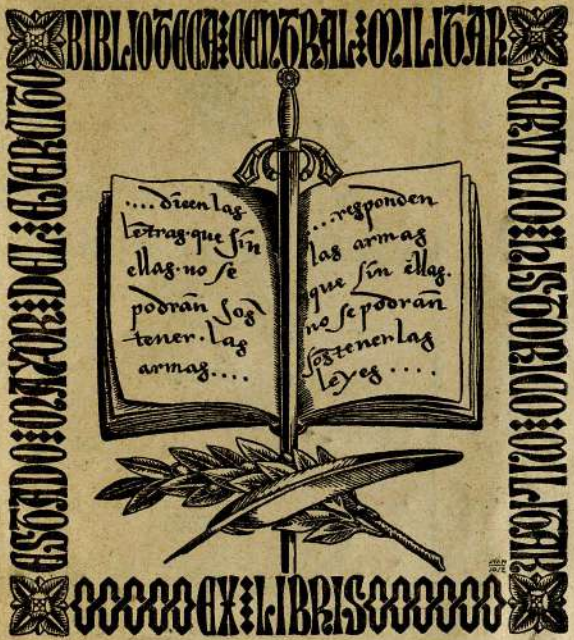 BIBLIOTECA CENTRAL MILITAR
SERVICIO HISTORICO MILITAR
ESTADO MAYOR DEL EJERCITO
.... dicen las
letras que sin
ellas no se
podrán sos
tener las
armas ....
... responden
las armas
que sin ellas
no se podrán
sostener las
leyes ....
EX LIBRIS